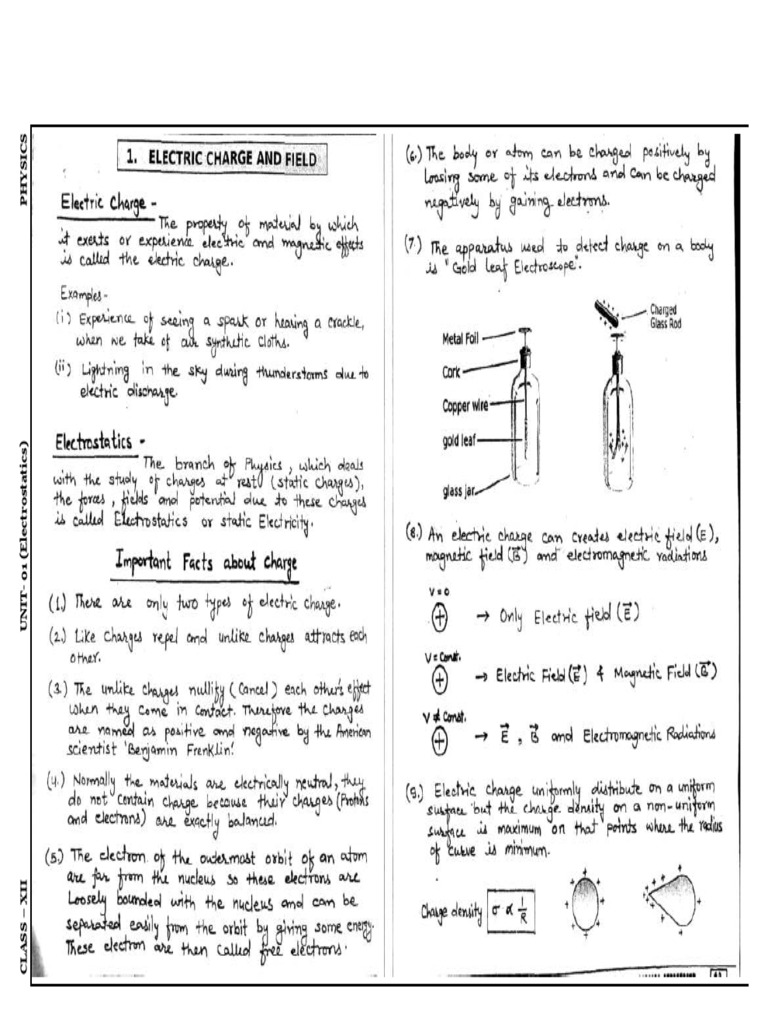 PHYSICS
UNIT- 01 (Electrostatics)
CLASS – XII
1. ELECTRIC CHARGE AND FIELD
Electric Charge -
The property of material by which
it exerts or experience electric and magnetic effects
is called the electric charge.
Examples-
(i) Experience of seeing a spark or hearing a crackle,
when we take of our synthetic cloths.
(ii) Lightning in the sky during thunderstorms due to
electric discharge.
Electrostatics -
The branch of Physics, which deals
with the study of charges at rest (static charges),
the forces, fields and potential due to these charges
is called Electrostatics or static Electricity.
Important Facts about charge
(1.) There are only two types of electric charge.
(2.) Like charges repel and unlike charges attracts each
other.
(3.) The unlike charges nullify (Cancel) each other's effect
when they come in contact. Therefore the charges
are named as positive and negative by the American
scientist 'Benjamin Frenklin'.
(4.) Normally the materials are electrically neutral, they
do not contain charge because their charges (Protons
and electrons) are exactly balanced.
(5.) The electron of the outermost orbit of an atom
are far from the nucleus so these electrons are
Loosely bounded with the nucleus and can be
separated easily from the orbit by giving some energy.
These electron are then called free electrons.
(6.) The body or atom can be charged positively by
loosing some of its electrons and can be charged
negatively by gaining electrons.
(7.) The apparatus used to detect charge on a body
is "Gold Leaf Electroscope".
Metal Foil
Cork
Copper wire
gold leaf
glass jar
Charged
Glass Rod
(8.) An electric charge can creates electric field (E),
magnetic field (B⃗) and electromagnetic radiations
V = 0
+ → Only Electric field (E⃗)
V = Const.
+ → Electric Field (E⃗) & Magnetic Field (B⃗)
V ≠ Const.
+ → E⃗, B⃗ and Electromagnetic Radiations
(9.) Electric charge uniformly distribute on a uniform
surface but the charge density on a non-uniform
surface is maximum on that points where the radius
of curve is minimum.
Charge density σ ∝ 1/R